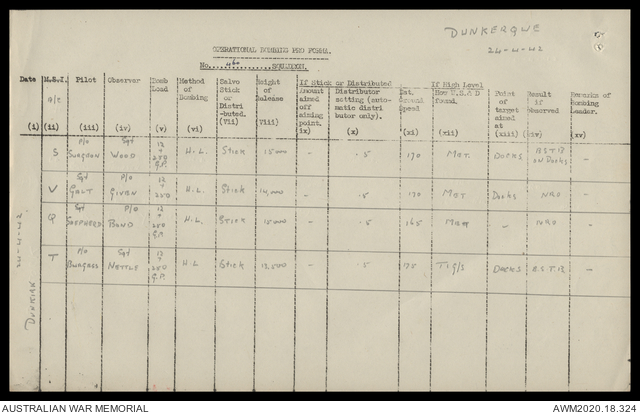 DUNKERQUE
24-4-42
OPERATIONAL BOMBING PRO FORMA.
No. 460 SQUADRON.
Date (i)
M.S.I. A/C (ii)
Pilot (iii)
Observer (iv)
Bomb Load (v)
Method of Bombing (vi)
Salvo Stick or Distri-buted. (vii)
Height of Release (viii)
If Stick or Distributed
Amount aimed off aiming point. ix)
Distributor setting (auto-matic distri butor only). (x)
Est. Ground Speed (xi)
If High Level
How W.S. & D found. (xii)
Point of target aimed at (xiii)
Result if observed (xiv)
Remarks of Bombing Leader. (xv)
S P/O Surgeon Sgt Wood 12 x 250 G.P. H.L. Stick 15000 - .5 170 Met. Docks B.S.T.13 on Docks -
V Sgt Galt P/O Given 12 x 250 H.L. Stick 14,000 - .5 170 Met Docks NRO -
Q Sgt Shepherd P/O Bond 12 x 250 G.P. H.L. Stick 15000 - .5 165 Met " NRO -
T P/O Burgess Sgt Nettle 12 x 250 G.P. H.L Stick 13,500 - .5 175 Docks B.S.T.13 -
DUNKIRK 24-4-42
AUSTRALIAN WAR MEMORIAL
AWM2020.18.324